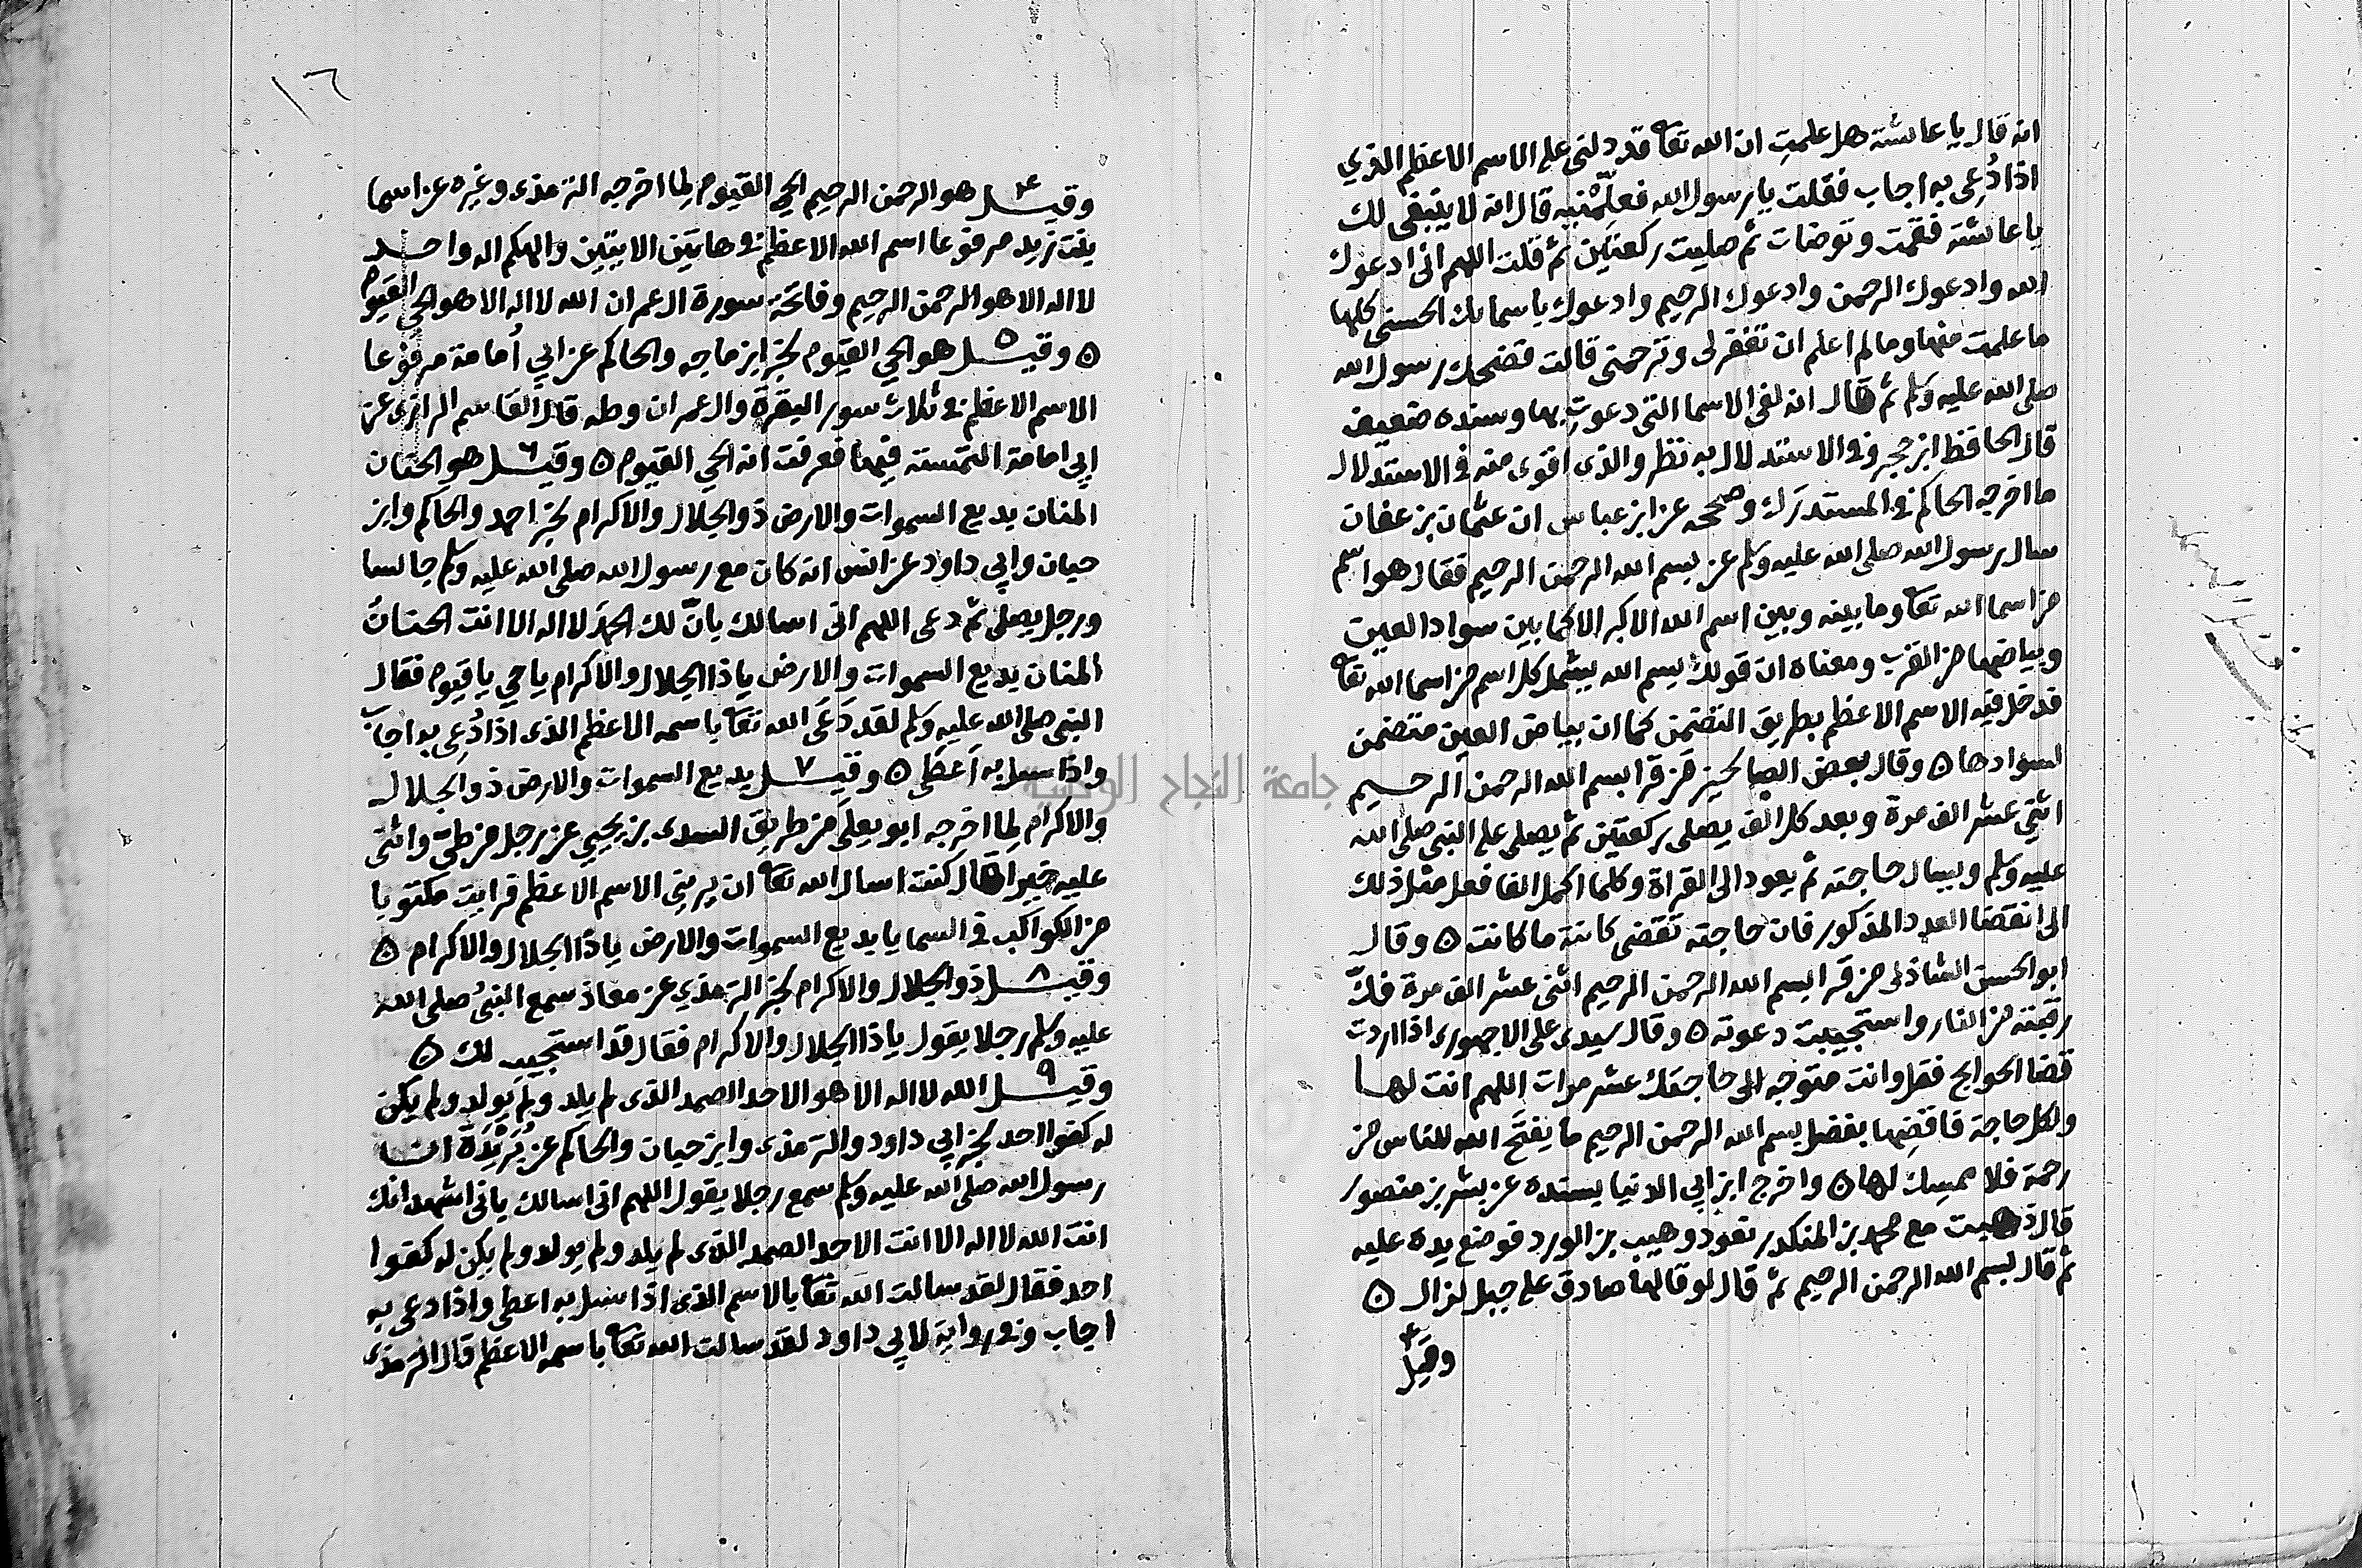 انه قال يا عائشة هل علمتِ ان الله تعا قد دلنى على الاسم الاعظم الذي
اذا دُعِى به اجاب فقلت يا رسول الله فعلِّمْنيه قال انه لا ينبغى لك
يا عائشة فقمت وتوضات ثم صليت ركعتين ثم قلت اللهم انى ادعوك
الله وادعوك الرحمن وادعوك الرحيم وادعوك باسمائك الحسنى كلها
ما علمت منها وما لم اعلم ان تغفر لى وترحمنى قالت فضحك رسول الله
صلى الله عليه وسلم ثم قال انه لفى الاسما التى دعوتِ بها وسنده ضعيف
قال الحافظ ابن حجر وفى الاستدلال به نظر والذى اقوى منه فى الاستدلال
ما اخرجه الحاكم فى المستدرك وصححه عن ابن عباس ان عثمان بن عفان
سال رسول الله صلى الله عليه وسلم عن بسم الله الرحمن الرحيم فقال هو اسم
من اسما الله تعا وما بينه وبين اسم الله الاكبر الا كما بين سواد العين
وبياضها من القرب ومعناه ان قولك بسم الله يشمل كل اسم من اسما الله تعا
فدخل فيه الاسم الاعظم بطريق التضمن كما ان بياض العين متضمن
لسوادها ٥ وقال بعض الصالحين من قرا بسم الله الرحمن الرحيم
اثنى عشر الف مرة وبعد كل الف يصلى ركعتين ثم يصلى على النبى صلى الله
عليه وسلم ويسال حاجته ثم يعود الى القراة وكلما اكمل الفا فعل مثل ذلك
الى انقضا العدد المذكور فان حاجته تقضى كائنة ما كانت ٥ وقال
ابو الحسن الشاذلى من قرا بسم الله الرحمن الرحيم اثنى عشر الف مرة فكّ
رقبته من النار واستجيبت دعوته ٥ وقال سيدى على الاجهورى اذا اردت
قضا الحوايج فقل وانت متوجه الى حاجتك عشر مرات اللهم انت لها
ولكل حاجة فاقضها بفضل بسم الله الرحمن الرحيم ما يفتح الله للناس من
رحمة فلا ممسك لها ٥ واخرج ابن ابي الدنيا بسنده عن بشر بن منصور
قال ذهبت مع محمد بن المنكدر نعود وهيب بن الورد فوضع يده عليه
ثم قال بسم الله الرحمن الرحيم ثم قال لو قالها صادق على جبل لزال ٥
وقيل ٤
١٦
وقيل ٤ هو الرحمن الرحيم الحي القيوم لِما اخرجه الترمذى وغيره عن اسما
بنت زيد مرفوعا اسم الله الاعظم فى هاتين الايتين والهكم اله واحد
لا اله الا هو الرحمن الرحيم وفاتحة سورة ال عمران الله لا اله الا هو الحي القيوم
٥ وقيل ٥ هو الحي القيوم لخبر ابن ماجه والحاكم عن ابي أُمامة مرفوعا
الاسم الاعظم فى ثلاث سور البقرة وال عمران وطه قال القاسم الراوى عن
ابي امامة التمسته فيها فعرفت انه الحي القيوم ٥ وقيل ٦ هو الحنان
المنان بديع السموات والارض ذو الجلال والاكرام لخبر احمد والحاكم وابن
حبان وابي داود عن انس انه كان مع رسول الله صلى الله عليه وسلم جالسا
ورجل يصلى ثم دعى اللهم انى اسالك بانّ لك الحمدَ لا اله الا انت الحنانُ
المنان بديع السموات والارض ياذا الجلال والاكرام يا حي يا قيوم فقال
النبى صلى الله عليه وسلم لقد دَعَى الله تعا باسمه الاعظم الذى اذا دُعِى به اجاب
واذا سيل به اَعطَى ٥ وقيل ٧ بديع السموات والارض ذو الجلال
والاكرام لِما اخرجه ابو يعلى من طريق السدى بن يحيي عن رجل من طي واثنى
عليه خيرا قال كنت اسال الله تعا ان يرينى الاسم الاعظم فرايت مكتوبا
من الكواكب فى السما يا بديع السموات والارض ياذا الجلال والاكرام ٥
وقيل ٨ ذو الجلال والاكرام لخبر الترمذي عن معاذ سمع النبىُ صلى الله
عليه وسلم رجلا يقول ياذا الجلال والاكرام فقال قد استجيب لك ٥
وقيل ٩ الله لا اله الا هو الاحد الصمد الذى لم يلد ولم يولد ولم يكن
له كفوا احد لخبر ابي داود والترمذى وابن حبان والحاكم عن بُرَيْدَة ان
رسول الله صلى الله عليه وسلم سمع رجلا يقول اللهم انى اسالك بانى اشهد انك
انت الله لا اله الا انت الاحد الصمد الذى لم يلد ولم يولد ولم يكن له كفوا
احد فقال لقد سالت الله تعا بالاسم الذى اذا سيل به اعطى واذا دعى به
اجاب وفى رواية لابي داود لقد سالت الله تعا باسمه الاعظم قال الترمذى
جامعة النجاح الوطنية